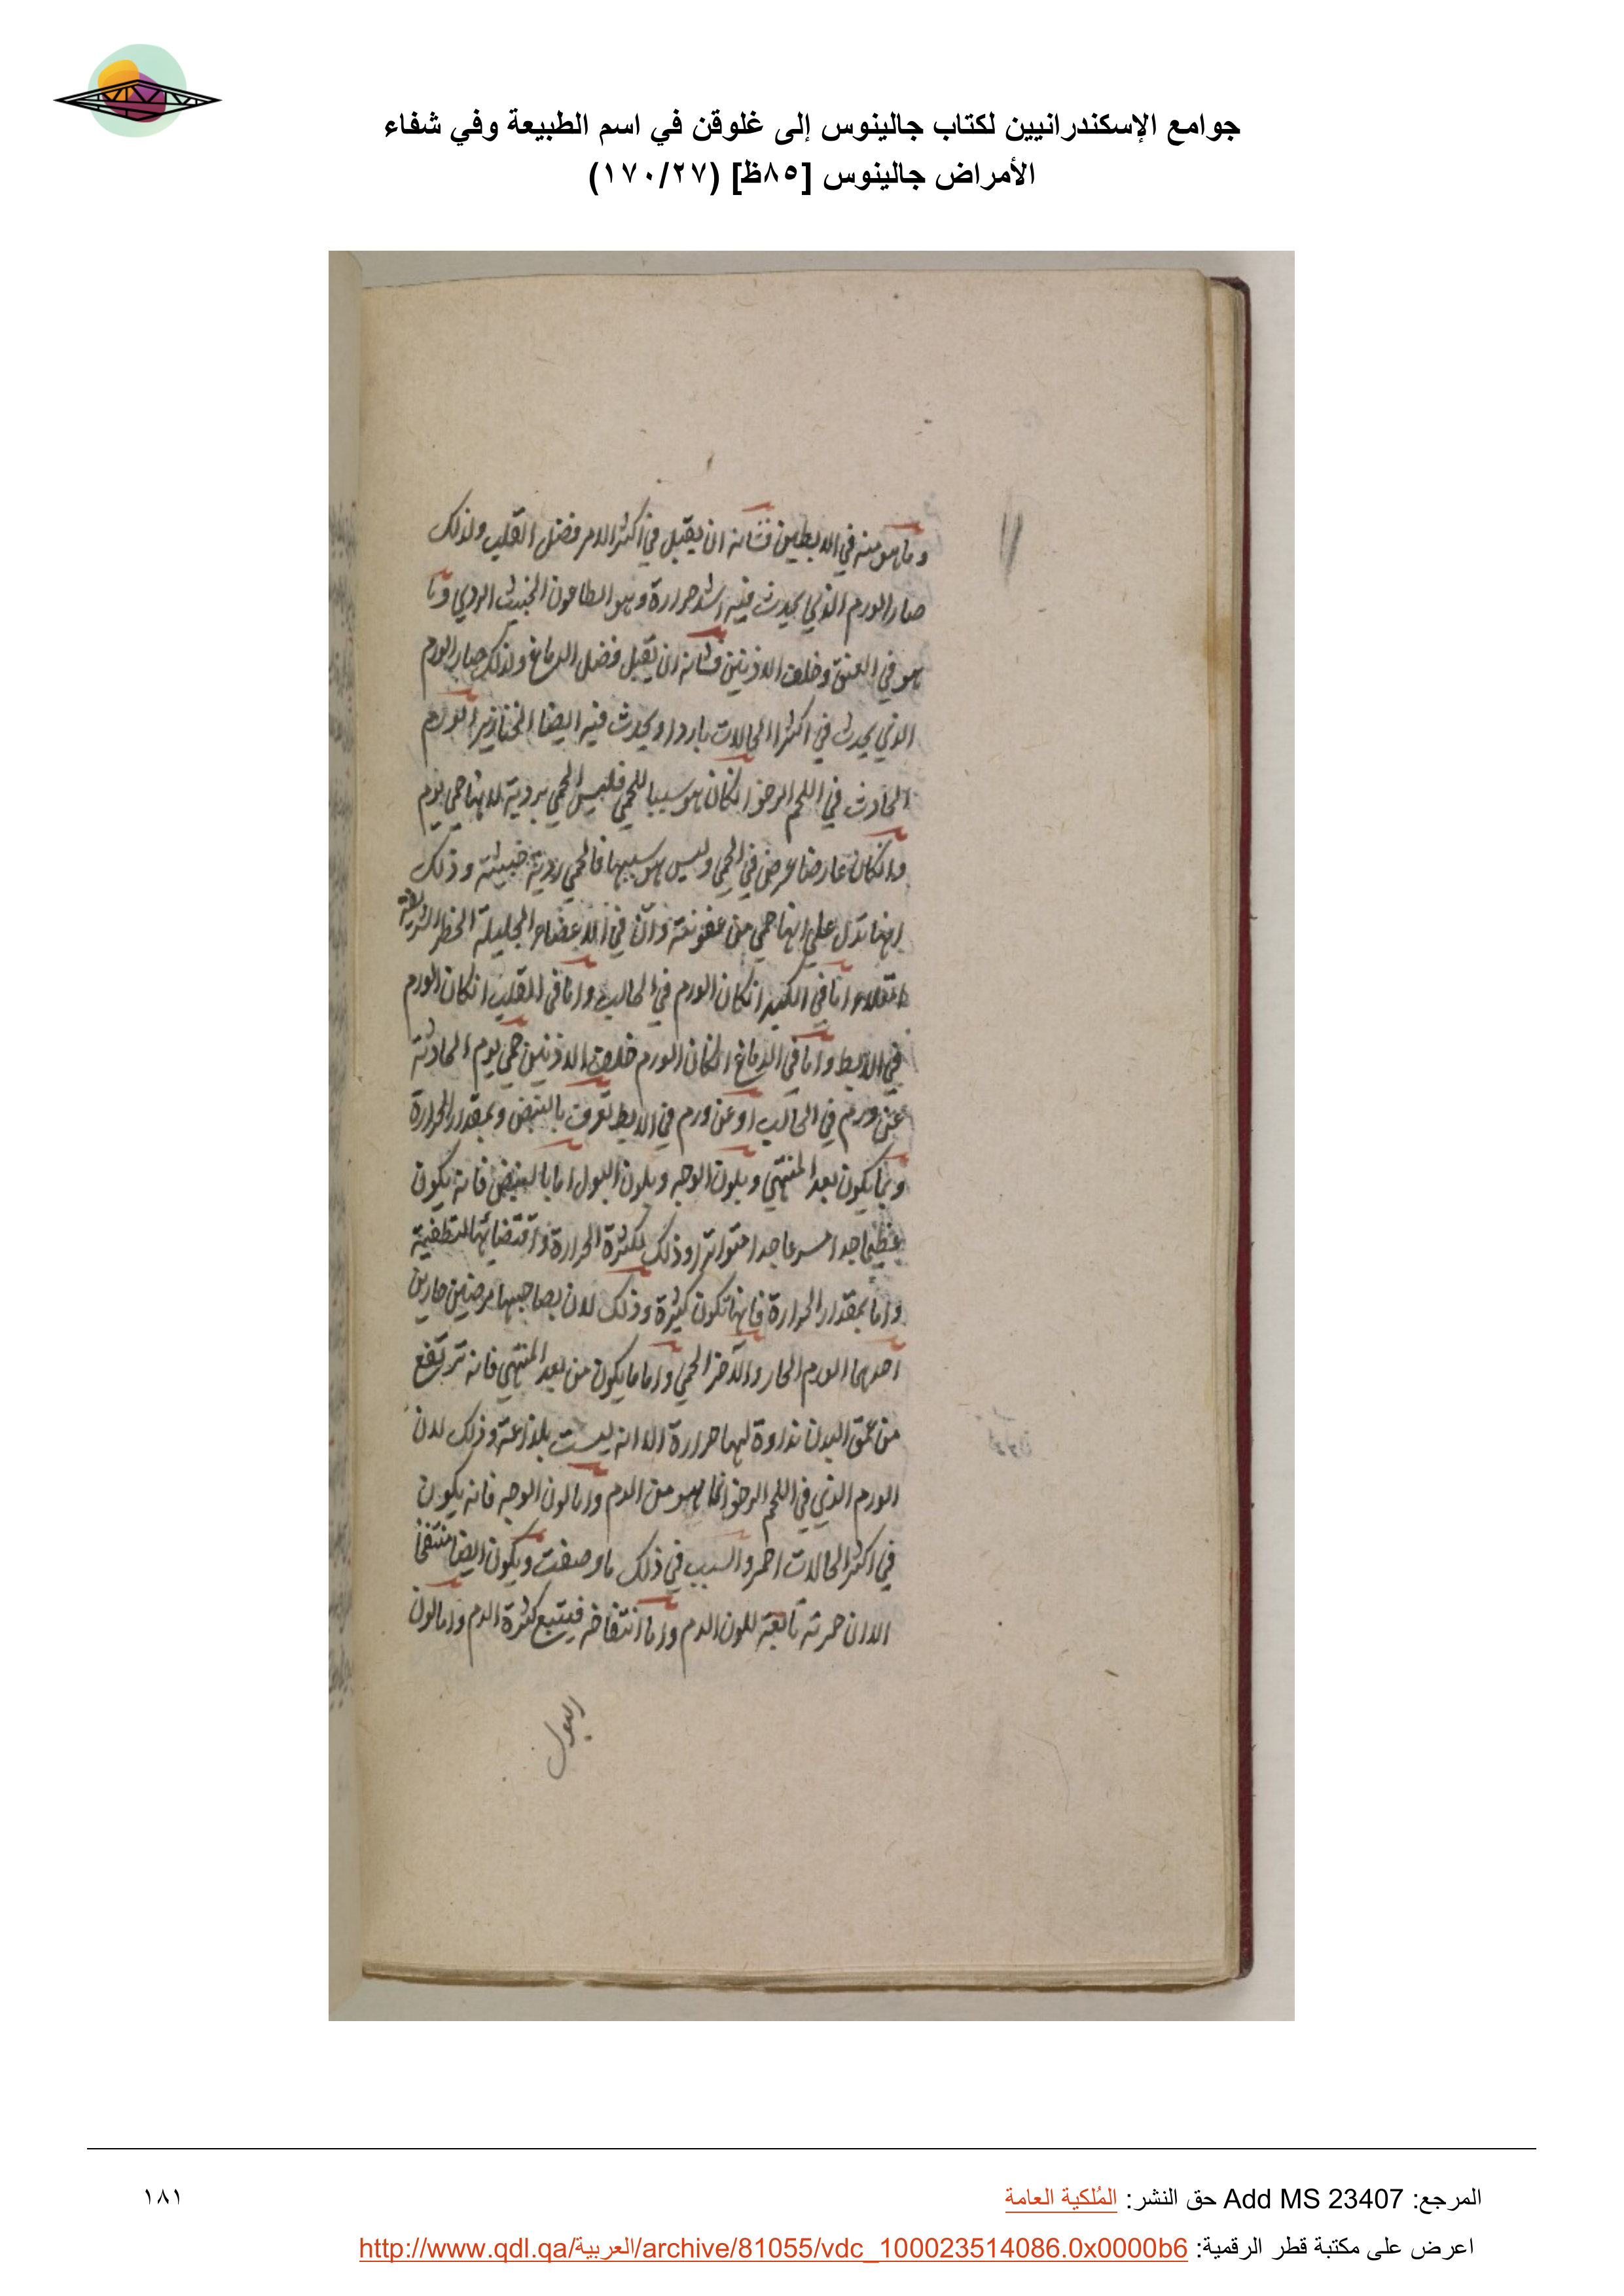 جوامع الإسكندرانيين لكتاب جالينوس إلى غلوقن في اسم الطبيعة وفي شفاء
الأمراض جالينوس [٨٥ظ] (١٧٠/٢٧)
وما هو منه في الابطين فشانه ان يقبل في اكثر الامر فضل القلب ولذلك
صار الورم الذي يحدث فيه اشد حرارة وهو الطاعون الخبيث الردي وما
هو في العنق وخلف الاذنين فشانه ان يقبل فضل الدماغ ولذلك صار الورم
الذي يحدث في اكثر الحالات باردا ويحدث فيه ايضا الخنازير الورم
الحادث في اللحم الرخو انكان هو سببا للحمى فليس الحمى بردية لانها حمى يوم
وانكان عارضا عرض في الحمى وليس هو سببها فالحمى ردية خبيثة وذلك
انها تدل على انها حمى من عفونة وان في الاعضاء الجليلة الخطر الشريفة
اما في الكبد انكان الورم في الحالب واما في القلب انكان الورم
في الابط واما في الدماغ انكان الورم خلف الاذنين حمى يوم الحادثة
عن ورم في الحالب او عن ورم في الابط تعرف بالنبض وبمقدار الحرارة
وبما يكون بعد المنتهى وبلون الوجه وبلون البول اما بالنبض فانه يكون
عظيما جدا سرعا جدا متواترا وذلك لكثرة الحرارة واقتضائها للتطفية
واما بمقدار الحرارة فانها تكون كثيرة وذلك لان بصاحبها مرضين حارين
احدهما الورم الحار والآخر الحمى واما ما يكون من بعد المنتهى فانه ترتفع
من عمق البدن نداوة لها حرارة الا انه ليست بلذاعة وذلك لان
الورم الذي في اللحم الرخو انما هو من الدم واما لون الوجه فانه يكون
في اكثر الحالات احمر والسبب في ذلك ما وصفت ويكون ايضا منتفخا
الا ان حمرته تابعة للون الدم واما انتفاخه فيتبع كثرة الدم واما لون
البول
المرجع: Add MS 23407 حق النشر: المُلكية العامة
١٨١
اعرض على مكتبة قطر الرقمية: http://www.qdl.qa/العربية/archive/81055/vdc_100023514086.0x0000b6